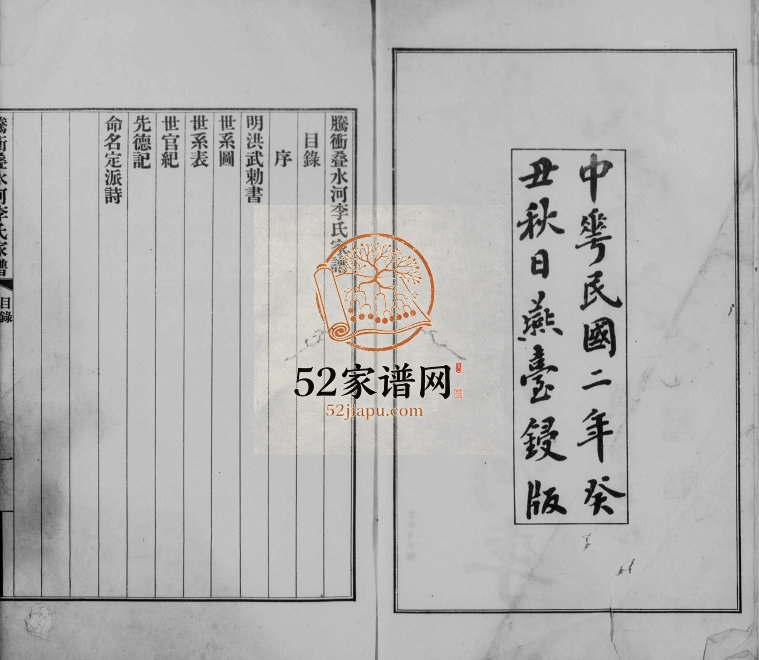 中華民國二年癸
丑秋日燕臺鋟版
騰衝疊水河李氏家譜
目錄
序
明洪武勅書
世系圖
世系表
世官紀
先德記
命名定派詩
騰衝疊水河李氏家譜
目錄
52家谱网
52jiapu.com